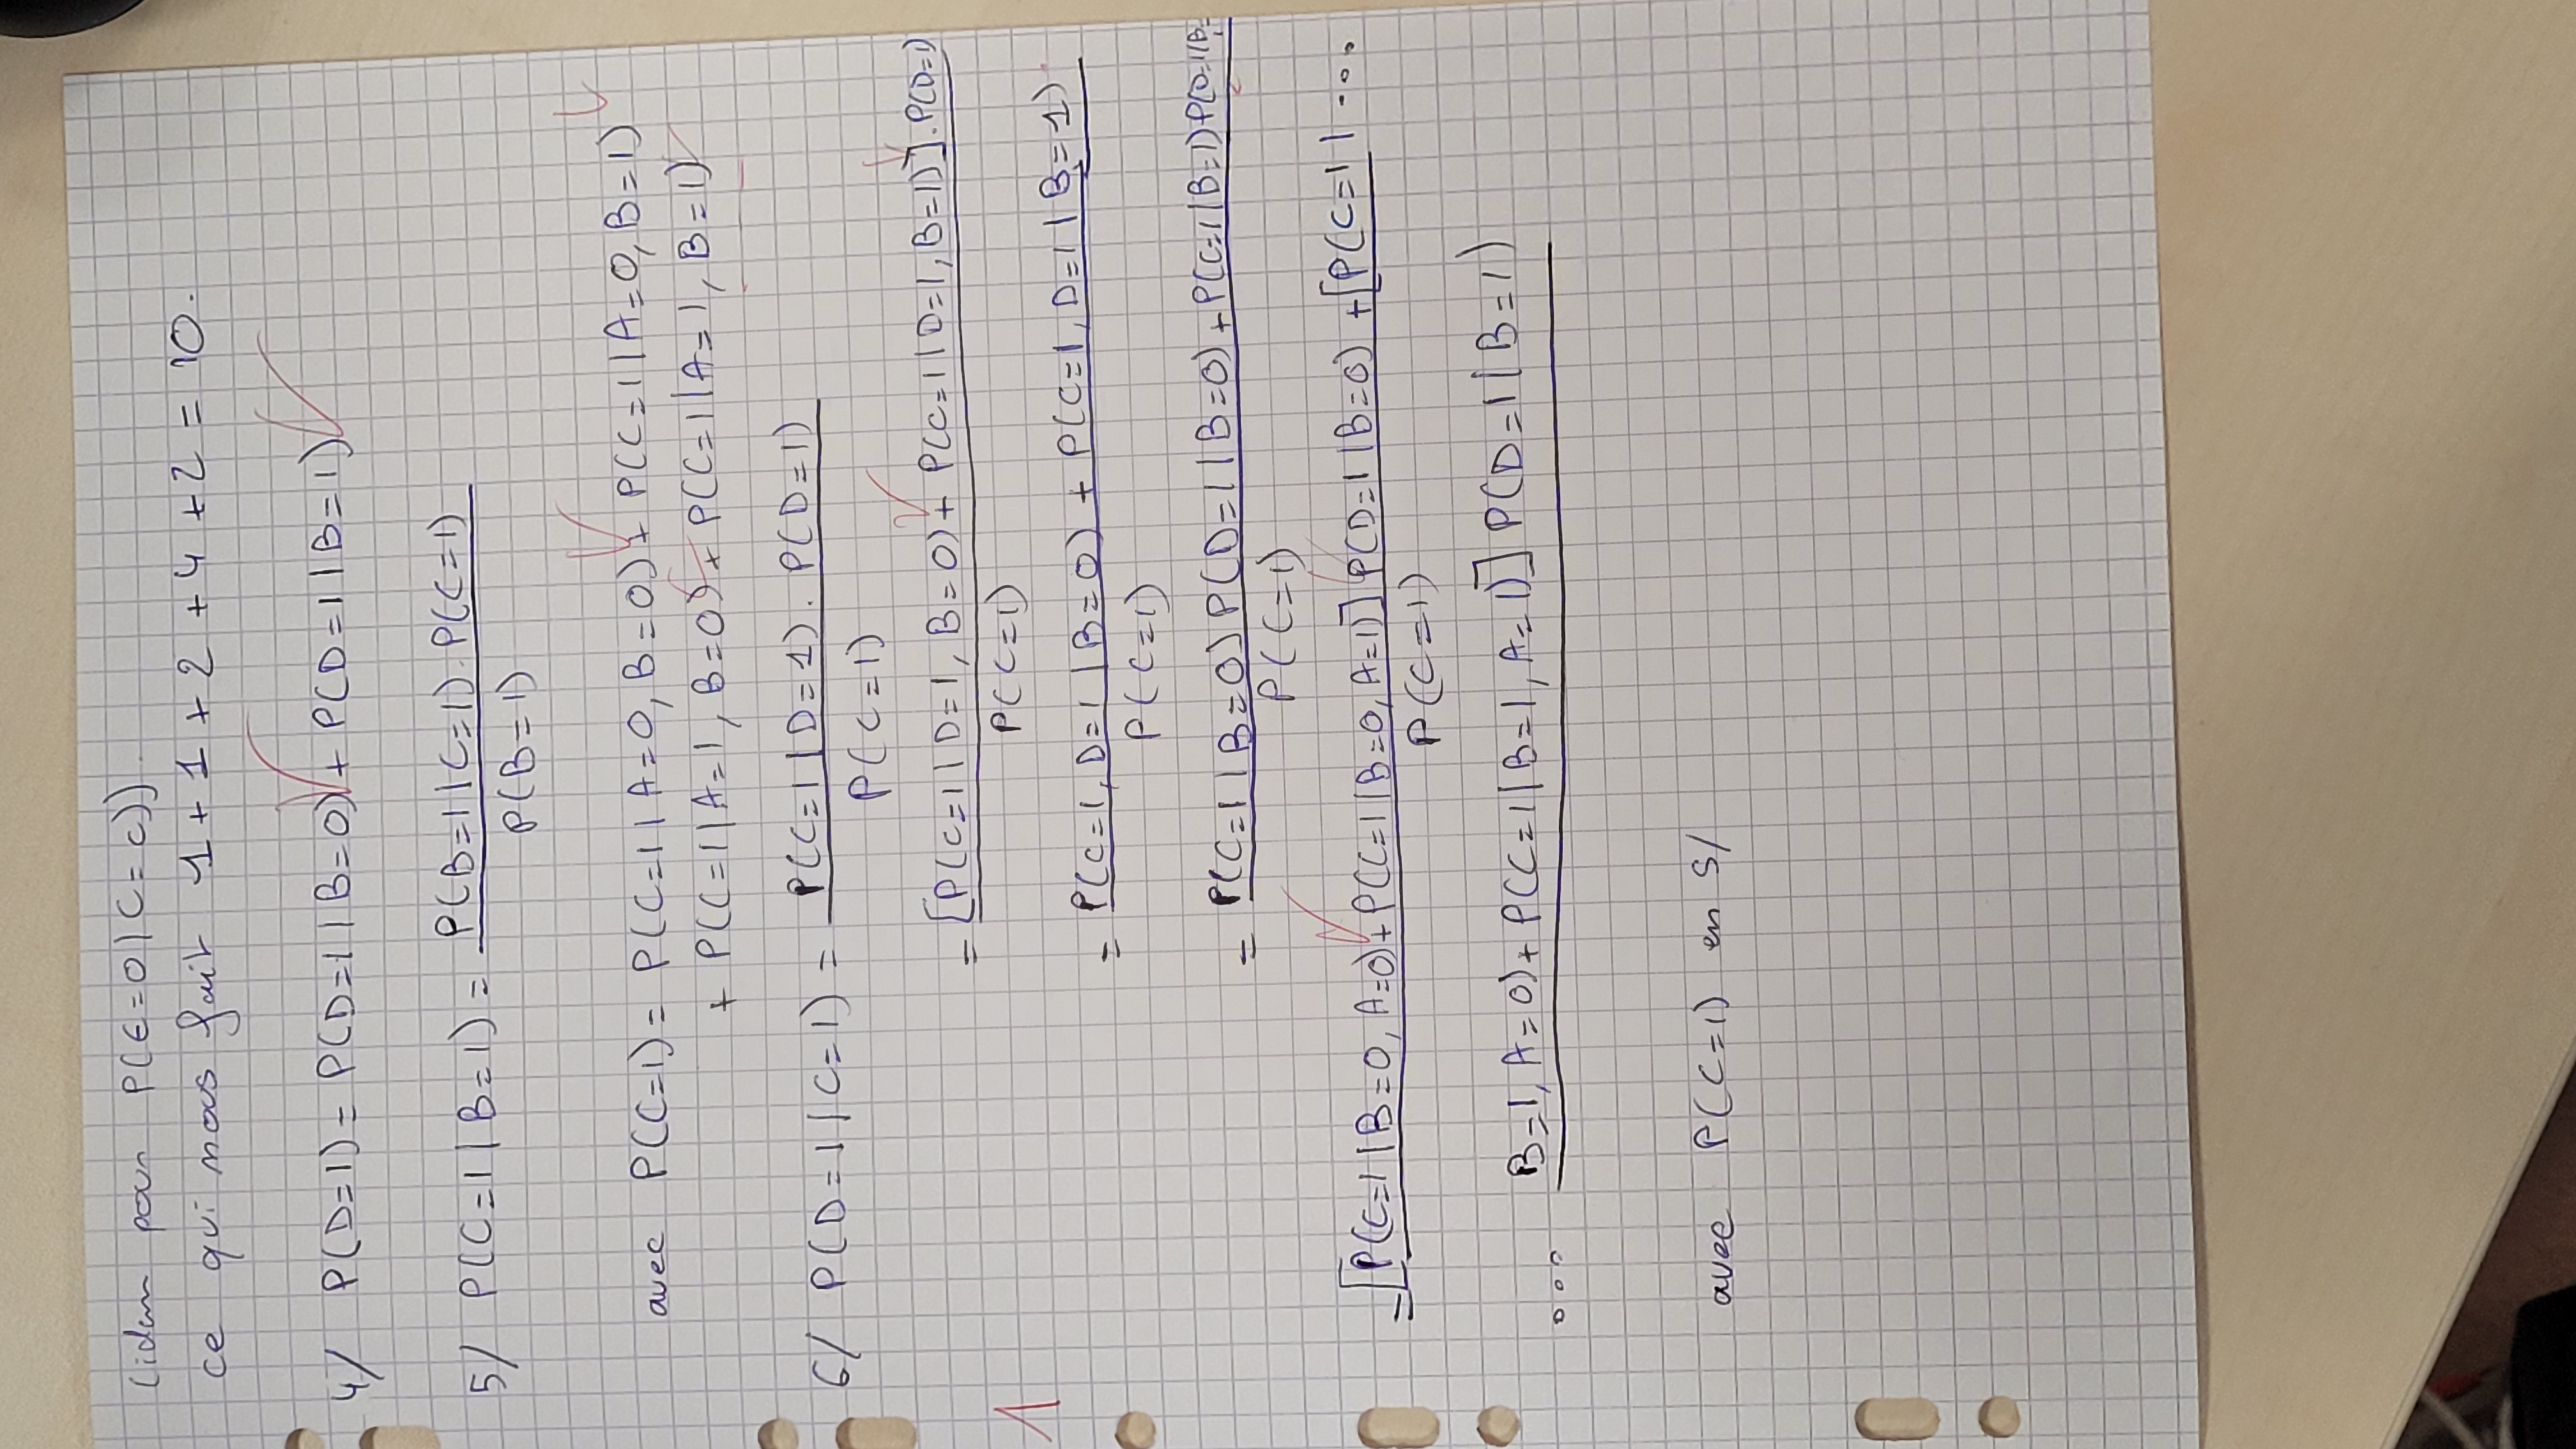 (idem pour P(E=0 | C=c))
ce qui nous fait 1 + 1 + 2 + 4 + 2 = 10.
4/ P(D=1) = P(D=1 | B=0) + P(D=1 | B=1)
5/ P(C=1 | B=1) = P(B=1 | C=1) . P(C=1)
P(B=1)
avec P(C=1) = P(C=1 | A=0, B=0) + P(C=1 | A=0, B=1)
+ P(C=1 | A=1, B=0) + P(C=1 | A=1, B=1)
6/ P(D=1 | C=1) = P(C=1 | D=1) . P(D=1)
P(C=1)
= [P(C=1 | D=1, B=0) + P(C=1 | D=1, B=1)] . P(D=1)
P(C=1)
1
= P(C=1, D=1 | B=0) + P(C=1, D=1 | B=1)
P(C=1)
= P(C=1 | B=0) P(D=1 | B=0) + P(C=1 | B=1) P(D=1 | B=
P(C=1)
= [P(C=1 | B=0, A=0) + P(C=1 | B=0, A=1)] P(D=1 | B=0) + [P(C=1 | ...
P(C=1)
... B=1, A=0) + P(C=1 | B=1, A=1)] P(D=1 | B=1)
avec P(C=1) en 5/